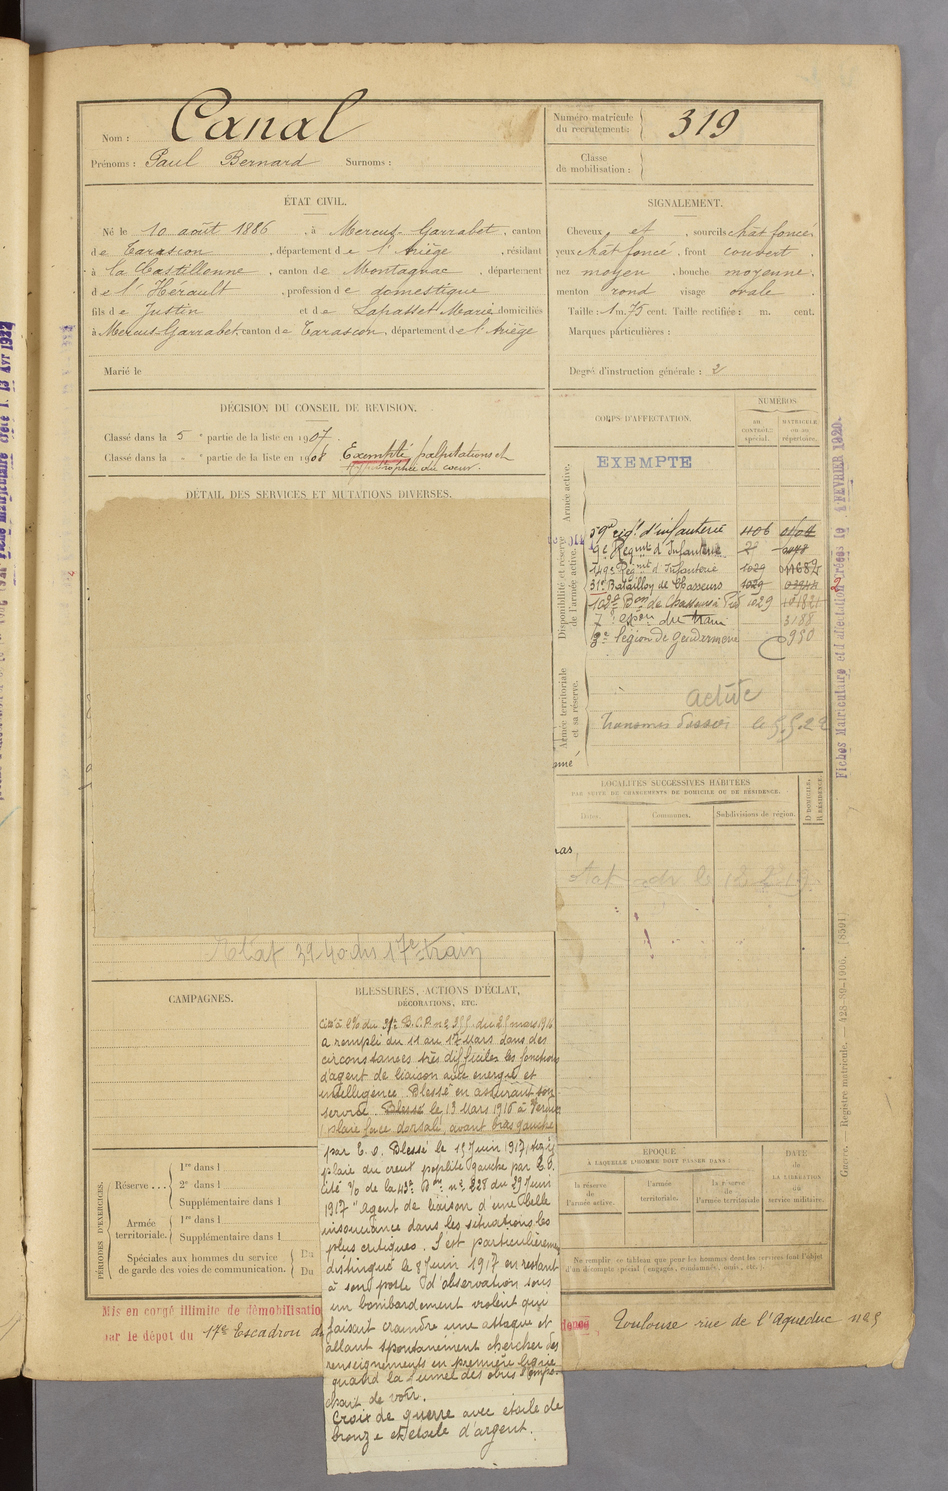 Nom : Canal
Prénoms : Paul Bernard Surnoms :
Numéro matricule
du recrutement : 319
Classe
de mobilisation :
ÉTAT CIVIL.
Né le 10 août 1886, à Mercus-Garrabet, canton
de Tarascon, département de l'Ariège, résidant
à la Castillonne, canton de Montagnac, département
de l'Hérault, profession de domestique
fils de Justin et de Lapasset Marie domiciliés
à Mercus-Garrabet canton de Tarascon, département de l'Ariège
Marié le
SIGNALEMENT.
Cheveux et, sourcils chat foncé,
yeux chât foncé, front couvert,
nez moyen, bouche moyenne,
menton rond visage ovale.
Taille : 1 m. 75 cent. Taille rectifiée : m. cent.
Marques particulières :
Degré d'instruction générale : 2
DÉCISION DU CONSEIL DE REVISION.
Classé dans la 5e partie de la liste en 1907.
Classé dans la - e partie de la liste en 1908 Exempté palpitations et
hypertrophie du coeur.
DÉTAIL DES SERVICES ET MUTATIONS DIVERSES.
CORPS D'AFFECTATION.
NUMÉROS.
AU
CONTRÔLE
spécial.
MATRICULE
ou au
répertoire.
Armée active.
EXEMPTE
Disponibilité et réserve
de l'armée active.
59e régt d'infanterie
9e Régiment d'Infanterie
149e Régmt d'Infanterie 1029
31e Bataillon de Chasseurs 1029
102e Bon de Chasseurs à Pied 1029
7e escon du train 3188
légion de gendarmerie 950
Armée territoriale
et sa réserve.
active
Transmis dossier le 5.5.22
LOCALITÉS SUCCESSIVES HABITÉES
PAR SUITE DE CHANGEMENTS DE DOMICILE OU DE RÉSIDENCE.
Dates. Communes. Subdivisions de région. D. DOMICILE. R. RÉSIDENCE.
Etat 39-40 du 17e train
CAMPAGNES.
BLESSURES, ACTIONS D'ÉCLAT,
DÉCORATIONS, ETC.
Cité à l'O du 31e B.C.P. no 355 du 25 mars 1916
a rempli du 11 au 17 Mars dans des
circonstances très difficiles les fonctions
d'agent de liaison avec energie et
intelligence. Blessé en assurant son
service. Blessé le 13 Mars 1916 à
plaie face dorsale avant bras gauche
par E. O. Blessé le 15 Juin 1917
plaie du creux poplité gauche par E.O.
Cité à l'O de la 43e Don no 228 du 29 Juin
1917 "agent de liaison d'une belle
insouciance dans les situations les
plus critiques. S'est particulièrement
distingué le 8 Juin 1917 en restant
à son poste d'observation sous
un bombardement violent qui
faisait craindre une attaque et
allant spontanément chercher des
renseignements en première ligne
quand la fumée des obus l'empe-
chait de voir.
Croix de guerre avec etoile de
bronze et etoile d'argent.
PÉRIODES D'EXERCICES.
Réserve....
1re dans l
2e dans l
Supplémentaire dans l
Armée
territoriale.
1re dans l
Supplémentaire dans l
Spéciales aux hommes du service
de garde des voies de communication.
Du
Du
ÉPOQUE
À LAQUELLE L'HOMME DOIT PASSER DANS :
la réserve
de
l'armée active.
l'armée
territoriale.
la réserve
de
l'armée territoriale
DATE
de
LA LIBÉRATION
du
service militaire.
Ne remplir ce tableau que pour les hommes dont les services font l'objet
d'un décompte spécial (engagés, condamnés, omis, etc.).
Mis en congé illimité de démobilisation
par le dépôt du 17e Escadron du
Toulouse rue de l'Aqueduc no 5
Fiches Matriculaire et d'affectation créées le 4 FEVRIER 1920.
Registre matricule. — 428-82-1906. [8591]